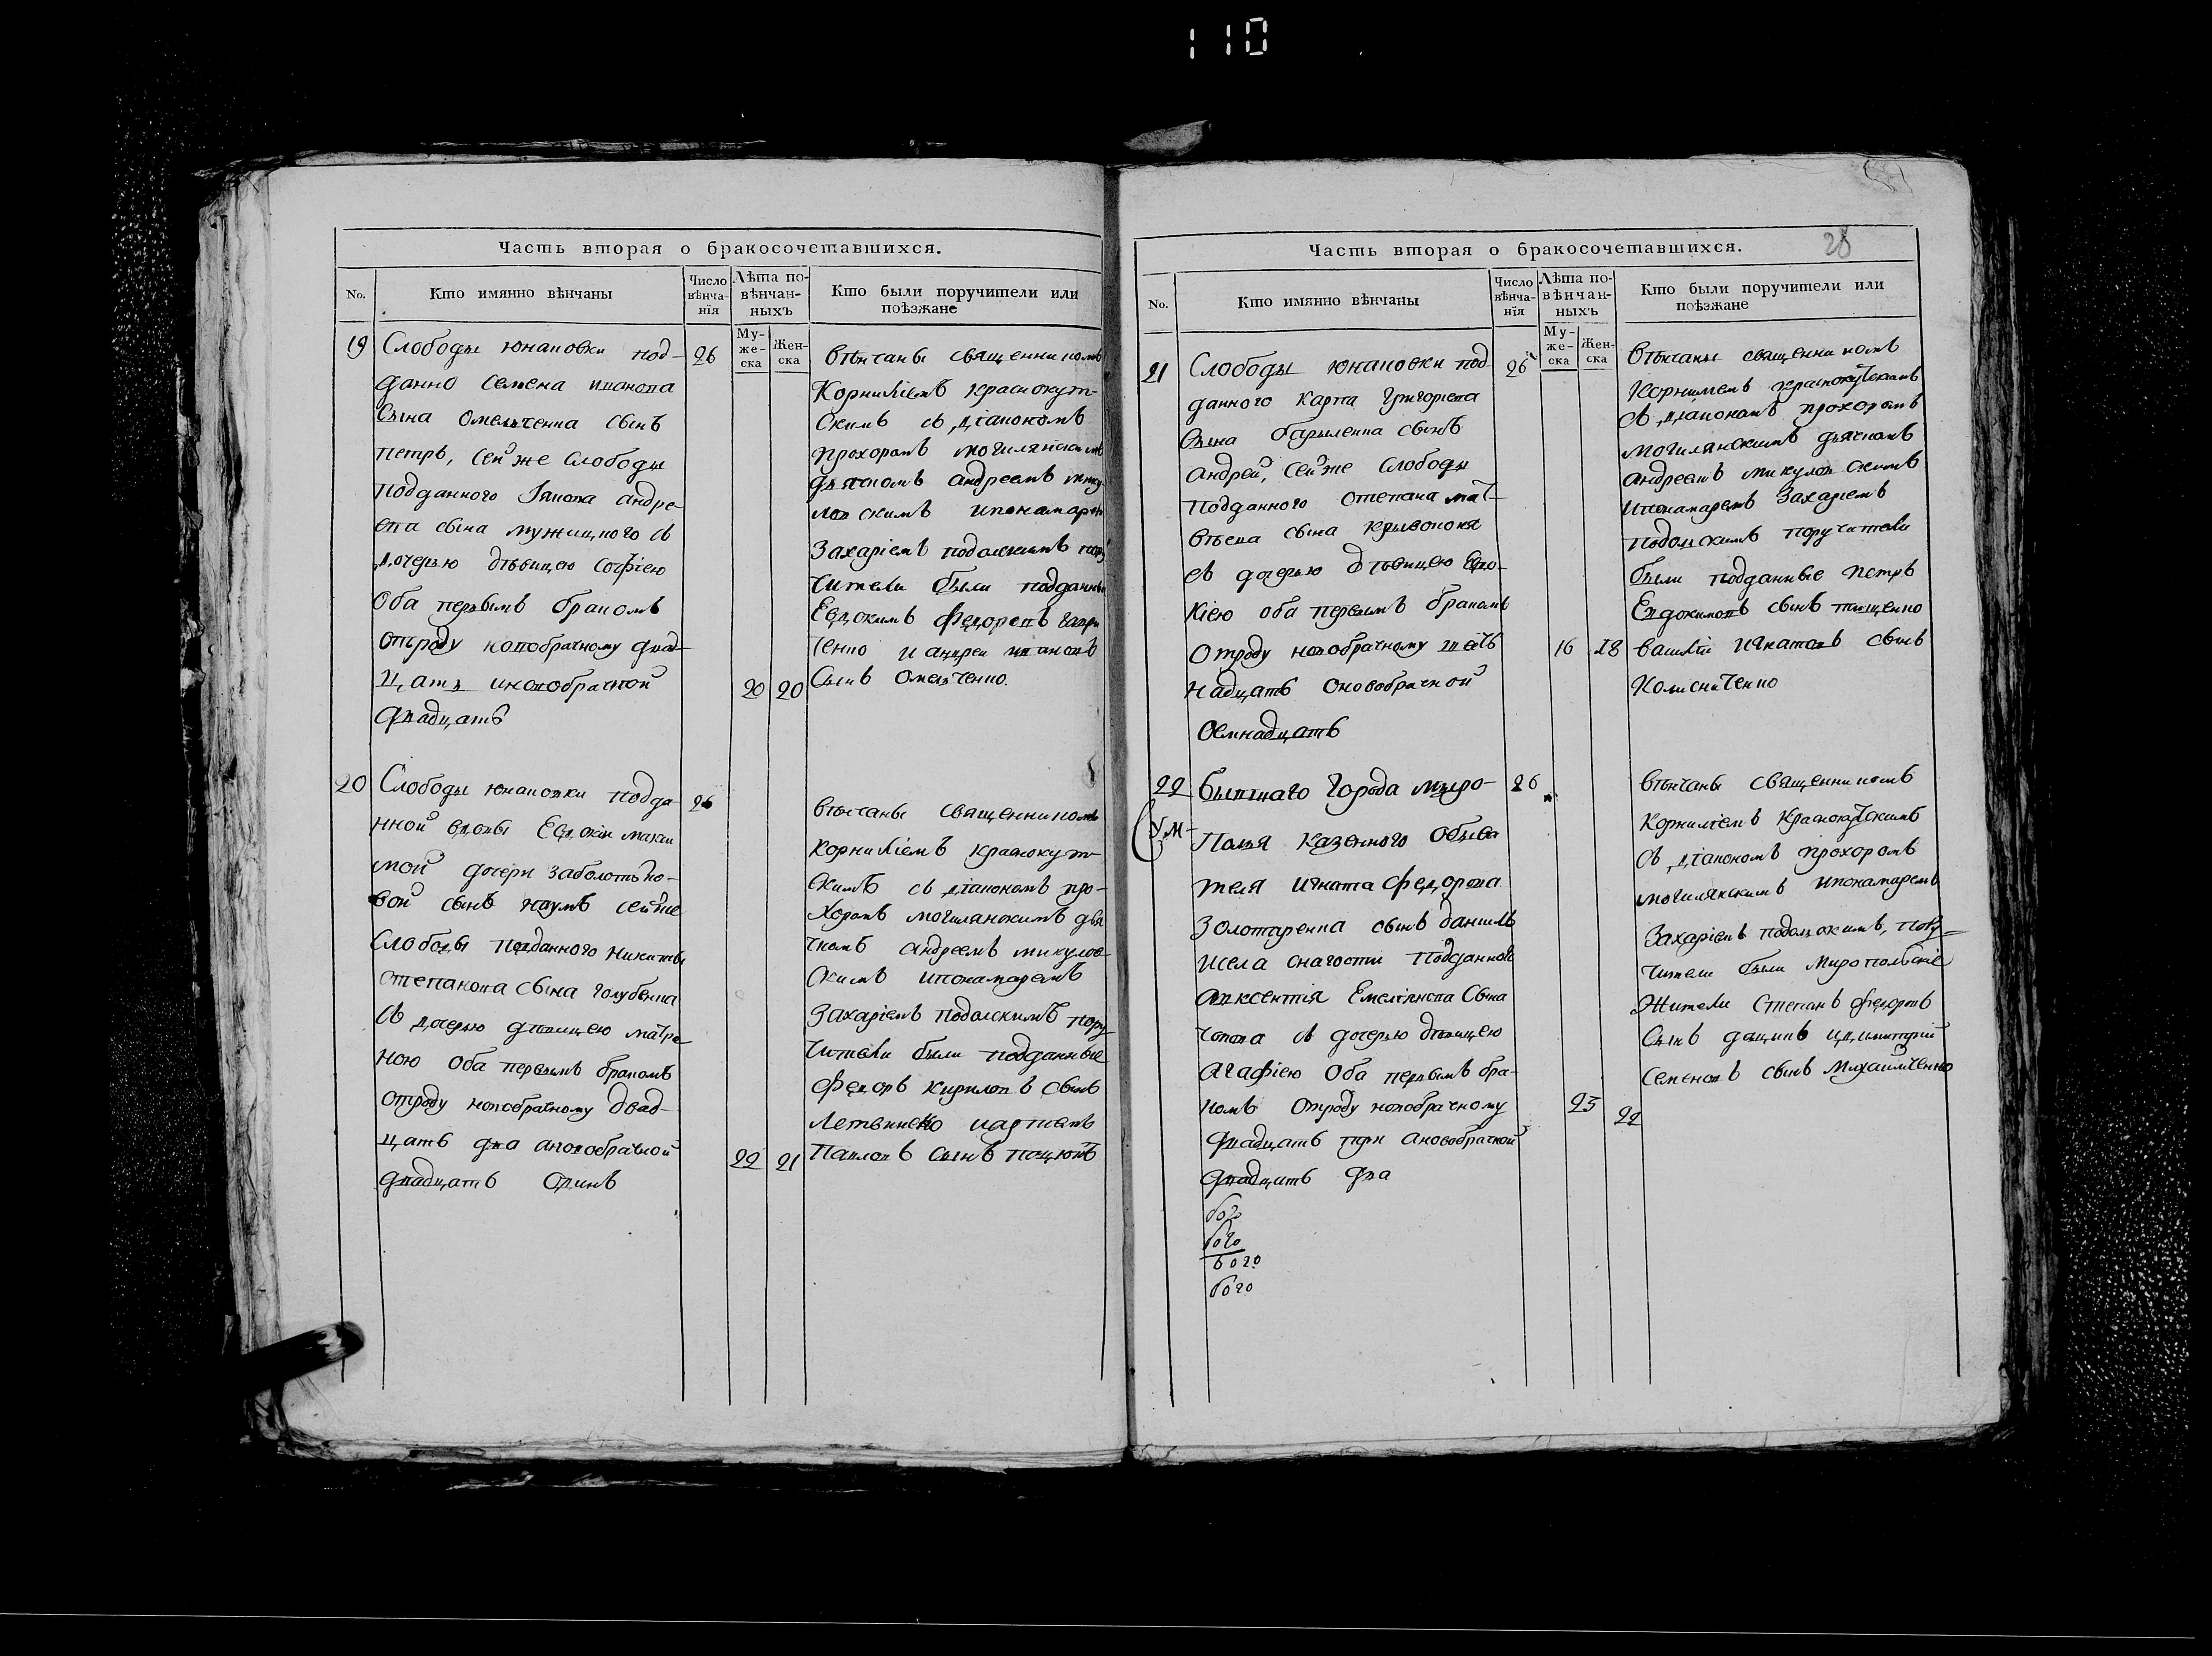 110
Часть вторая о бракосочетавшихся.
No.
Кто имянно вѣнчаны
Число вѣнча-нїя
Лѣта по-вѣнчан-ныхъ
Му-же-ска
Жен-ска
Кто были поручители или поѣзжане
19 Слободы юнаковки под- 26
данно Семена иванова
сына Омельченка сынъ
петръ, сей же слободы
подданного Якова андре-
ева сына мужицкого съ
дочерью дѣвицею софіею
оба первымъ бракомъ
отроду новобрачному двад-
цать иновобрачной 20 20
двадцать
вѣнчаны священникомъ
Корниліемъ краснокут-
скимъ съ діакономъ
прохоромъ могилянскимъ
дьячкомъ андреемъ мику-
ловскимъ ипонамаремъ
Захаріемъ подолскимъ пору
чители были подданные
Евдокимъ федоровъ
ченко и андреи ивановъ
Сынъ Омелченко.
20 Слободы юнаковки подда- 26
нной вдовы Евдокіи макси
мой дочери заболотько-
вой сынъ наумъ сейже
слободы подданного никиты
степанова сына голубенка
съ дочерью дѣвицею матро-
ною оба первымъ бракомъ
отроду новобрачному двад-
цать два ановобрачной 22 21
двадцать одинъ
вѣнчаны священникомъ
корниліемъ краснокут-
скимъ съ діакономъ про-
хоромъ могилянскимъ дья
чкомъ андреемъ микулов-
скимъ ипонамаремъ
Захаріемъ подолскимъ пору-
чители были подданные
федоръ кириловъ сынъ
Павловъ сынъ
Часть вторая о бракосочетавшихся. 28
No.
Кто имянно вѣнчаны
Число вѣнча-нїя
Лѣта по-вѣнчан-ныхъ
Му-же-ска
Жен-ска
Кто были поручители или поѣзжане
21 Слободы юнаковки под- 26
данного карпа григоріева
сына сынъ
андрей, сей же слободы
подданного степана мат-
вѣева сына кривонося
съ дочерью дѣвицею евдо-
кіею оба первымъ бракомъ
отроду новобрачному шест 16 18
надцать оновобрачной
осмнадцать
вѣнчаны священникомъ
Корниліемъ краснокутскимъ
съ діакономъ прохоромъ
могилянскимъ дьячкомъ
андреемъ микуловскимъ
ипонамаремъ Захаріемъ
подолскимъ поручители
были подданные петръ
Евдокимовъ сынъ тищенко
василій игнатовъ сынъ
Колисниченко
22 бывшаго города миро- 26
полья казенного обыва
теля игната федорова
Золотаренка сынъ данилъ
исела снагости подданного
авксентія Емеліянова сына
съ дочерью дѣвицею
агафіею оба первымъ бра-
комъ отроду новобрачному 23 22
двадцать три ановобрачной
двадцать два
вѣнчаны священникомъ
Корниліемъ краснокутскимъ
съ діакономъ прохоромъ
могилянскимъ ипонамаремъ
Захаріемъ подолскимъ, пору-
чители были миропольскіе
Жители степанъ федоровъ
Сынъ идимитрій
семеновъ сынъ михайличенко